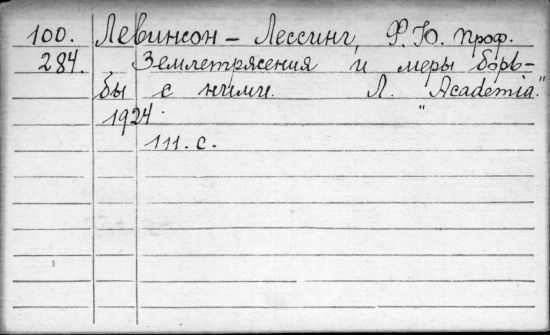 100. Левинсон - Лессинг, Ф. Ю. проф.
284. Землетрясения и меры борь-
бы с ними. Л. "Academia."
1924.
111. с.